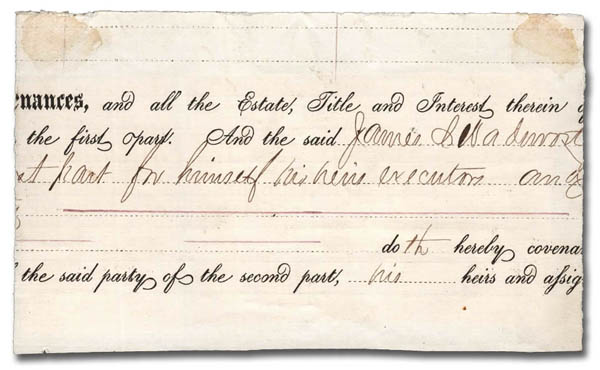 enances, and all the Estate, Title and Interest therein o
the first part. And the said James S Wadswort
st part for himself his heirs executors and
doth hereby covena
the said party of the second part, his heirs and assig